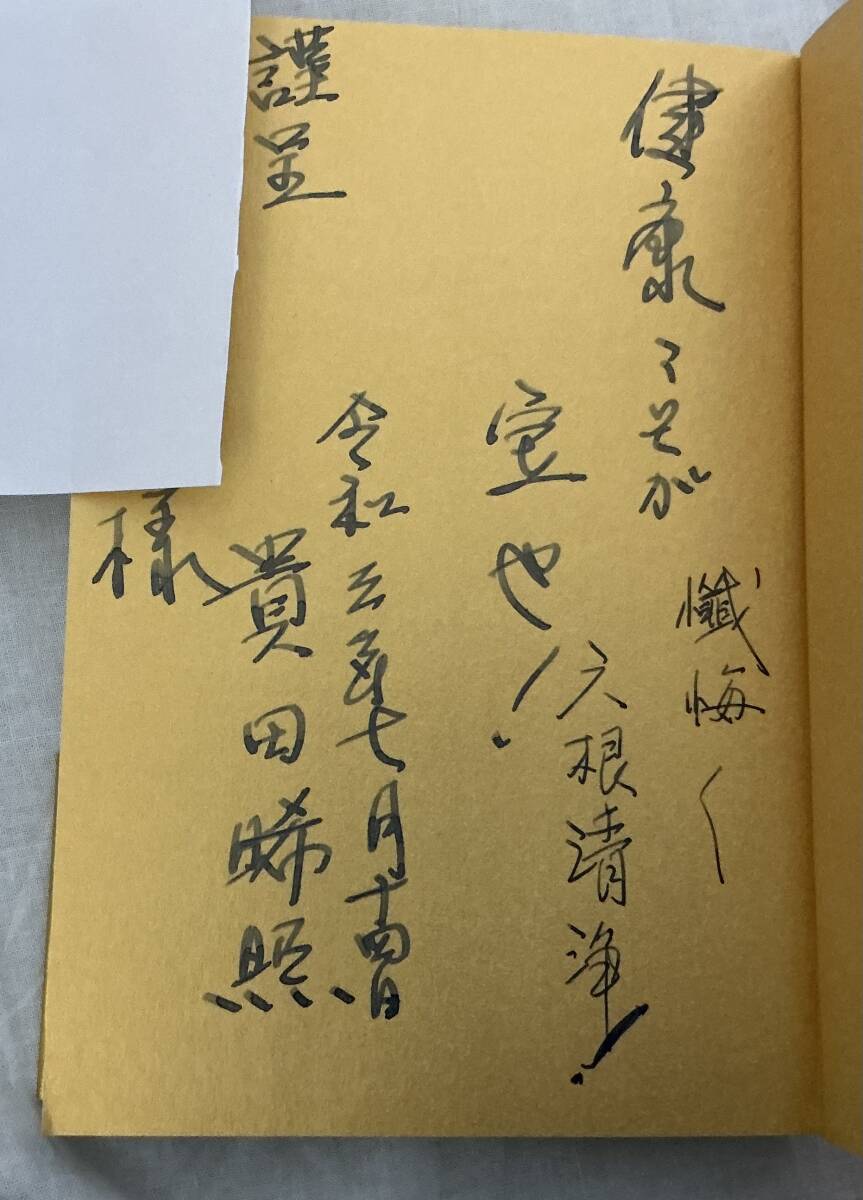 健康こそが
宝也!
懺悔〱
六根清浄!
令和三年七月十四日
貴田晞照
謹呈
様